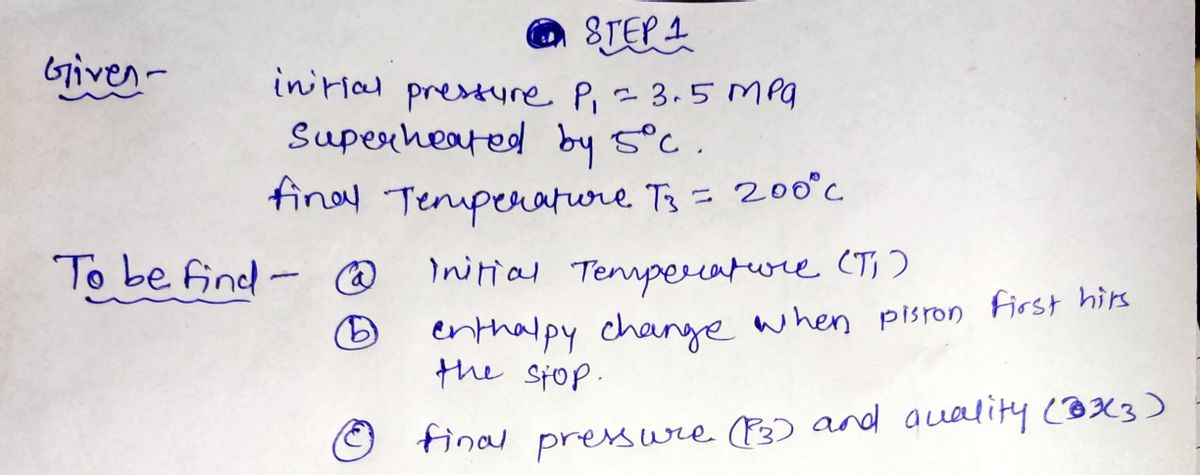 STEP 1
Given-
initial pressure P₁ = 3.5 MPa
Superheated by 5°C.
final Temperature T₃ = 200°C
To be find - ⓐ Initial Temperature (T₁)
ⓑ enthalpy change when piston first hits
the stop.
ⓒ final pressure (P₃) and quality (x₃)